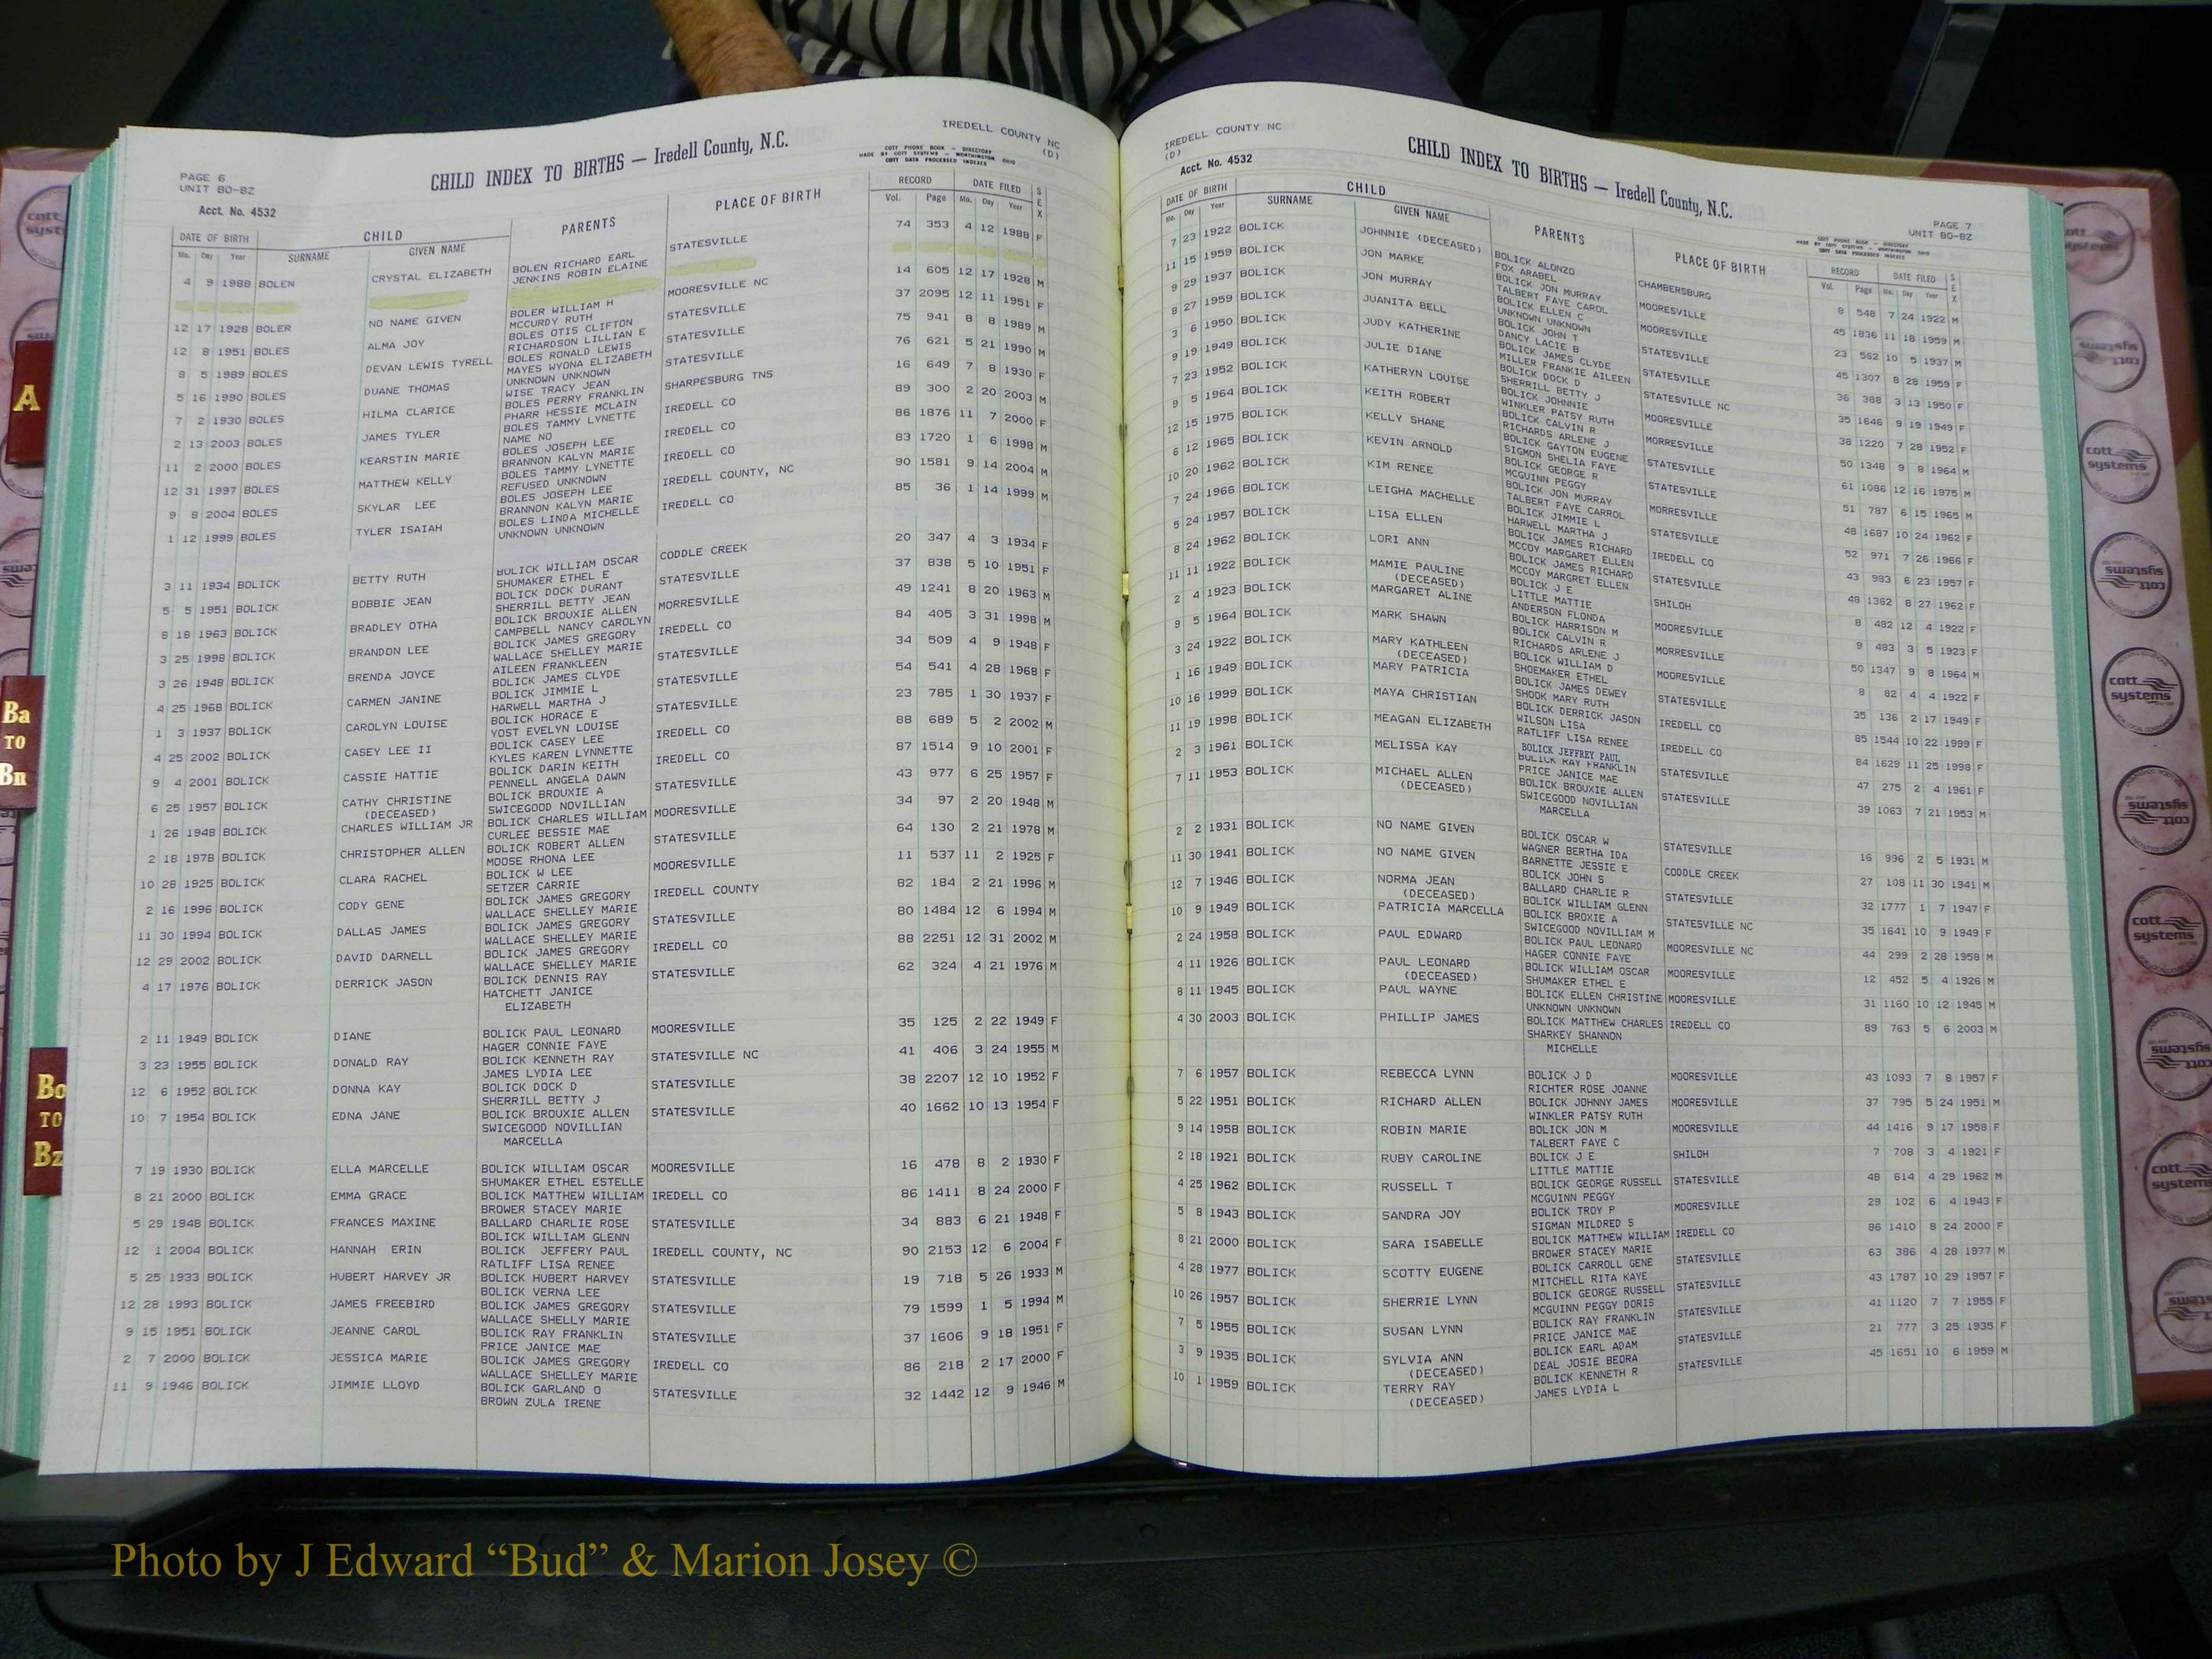 IREDELL COUNTY NC
(D)
CHILD INDEX TO BIRTHS — Iredell County, N.C.
COTT PHONE BOOK — DIRECTORY
MADE BY COTT SYSTEMS — WORTHINGTON OHIO
COTT DATA PROCESSED INDEXES
PAGE 6
UNIT BO-BZ
Acct. No. 4532
DATE OF BIRTH CHILD PARENTS PLACE OF BIRTH RECORD DATE FILED SEX
Mo. Day Year SURNAME GIVEN NAME Vol. Page Mo. Day Year
4 9 1988 BOLEN CRYSTAL ELIZABETH BOLEN RICHARD EARL STATESVILLE 74 353 4 12 1988 F
JENKINS ROBIN ELAINE
12 17 1928 BOLER NO NAME GIVEN BOLER WILLIAM H MOORESVILLE NC 14 605 12 17 1928 M
MCCURDY RUTH
12 8 1951 BOLES ALMA JOY BOLES OTIS CLIFTON STATESVILLE 37 2095 12 11 1951 F
RICHARDSON LILLIAN E
8 5 1989 BOLES DEVAN LEWIS TYRELL BOLES RONALD LEWIS STATESVILLE 75 941 8 8 1989 M
MAYES WYONA ELIZABETH
5 16 1990 BOLES DUANE THOMAS UNKNOWN UNKNOWN STATESVILLE 76 621 5 21 1990 M
WISE TRACY JEAN
7 2 1930 BOLES HILMA CLARICE BOLES PERRY FRANKLIN SHARPESBURG TNS 16 649 7 8 1930 F
PHARR HESSIE MCLAIN
2 13 2003 BOLES JAMES TYLER BOLES TAMMY LYNETTE IREDELL CO 89 300 2 20 2003 M
NAME NO
11 2 2000 BOLES KEARSTIN MARIE BOLES JOSEPH LEE IREDELL CO 86 1876 11 7 2000 F
BRANNON KALYN MARIE
12 31 1997 BOLES MATTHEW KELLY BOLES TAMMY LYNETTE IREDELL CO 83 1720 1 6 1998 M
REFUSED UNKNOWN
9 8 2004 BOLES SKYLAR LEE BOLES JOSEPH LEE IREDELL COUNTY, NC 90 1581 9 14 2004 M
BRANNON KALYN MARIE
1 12 1999 BOLES TYLER ISAIAH BOLES LINDA MICHELLE IREDELL CO 85 36 1 14 1999 M
UNKNOWN UNKNOWN
3 11 1934 BOLICK BETTY RUTH BOLICK WILLIAM OSCAR CODDLE CREEK 20 347 4 3 1934 F
SHUMAKER ETHEL E
5 5 1951 BOLICK BOBBIE JEAN BOLICK DOCK DURANT STATESVILLE 37 838 5 10 1951 F
SHERRILL BETTY JEAN
8 18 1963 BOLICK BRADLEY OTHA BOLICK BROUXIE ALLEN MORRESVILLE 49 1241 8 20 1963 M
CAMPBELL NANCY CAROLYN
3 25 1998 BOLICK BRANDON LEE BOLICK JAMES GREGORY IREDELL CO 84 405 3 31 1998 M
WALLACE SHELLEY MARIE
3 26 1948 BOLICK BRENDA JOYCE AILEEN FRANKLEEN STATESVILLE 34 509 4 9 1948 F
BOLICK JAMES CLYDE
4 25 1968 BOLICK CARMEN JANINE BOLICK JIMMIE L STATESVILLE 54 541 4 28 1968 F
HARWELL MARTHA J
1 3 1937 BOLICK CAROLYN LOUISE BOLICK HORACE E STATESVILLE 23 785 1 30 1937 F
YOST EVELYN LOUISE
4 25 2002 BOLICK CASEY LEE II BOLICK CASEY LEE IREDELL CO 88 689 5 2 2002 M
KYLES KAREN LYNNETTE
9 4 2001 BOLICK CASSIE HATTIE BOLICK DARIN KEITH IREDELL CO 87 1514 9 10 2001 F
PENNELL ANGELA DAWN
6 25 1957 BOLICK CATHY CHRISTINE BOLICK BROUXIE A STATESVILLE 43 977 6 25 1957 F
(DECEASED) SWICEGOOD NOVILLIAN
1 26 1948 BOLICK CHARLES WILLIAM JR BOLICK CHARLES WILLIAM MOORESVILLE 34 97 2 20 1948 M
CURLEE BESSIE MAE
2 18 1978 BOLICK CHRISTOPHER ALLEN BOLICK ROBERT ALLEN STATESVILLE 64 130 2 21 1978 M
MOOSE RHONA LEE
10 28 1925 BOLICK CLARA RACHEL BOLICK W LEE MOORESVILLE 11 537 11 2 1925 F
SETZER CARRIE
2 16 1996 BOLICK CODY GENE BOLICK JAMES GREGORY IREDELL COUNTY 82 184 2 21 1996 M
WALLACE SHELLEY MARIE
11 30 1994 BOLICK DALLAS JAMES BOLICK JAMES GREGORY STATESVILLE 80 1484 12 6 1994 M
WALLACE SHELLEY MARIE
12 29 2002 BOLICK DAVID DARNELL BOLICK JAMES GREGORY IREDELL CO 88 2251 12 31 2002 M
WALLACE SHELLEY MARIE
4 17 1976 BOLICK DERRICK JASON BOLICK DENNIS RAY STATESVILLE 62 324 4 21 1976 M
HATCHETT JANICE
ELIZABETH
2 11 1949 BOLICK DIANE BOLICK PAUL LEONARD MOORESVILLE 35 125 2 22 1949 F
HAGER CONNIE FAYE
3 23 1955 BOLICK DONALD RAY BOLICK KENNETH RAY STATESVILLE NC 41 406 3 24 1955 M
JAMES LYDIA LEE
12 6 1952 BOLICK DONNA KAY BOLICK DOCK D STATESVILLE 38 2207 12 10 1952 F
SHERRILL BETTY J
10 7 1954 BOLICK EDNA JANE BOLICK BROUXIE ALLEN STATESVILLE 40 1662 10 13 1954 F
SWICEGOOD NOVILLIAN
MARCELLA
7 19 1930 BOLICK ELLA MARCELLE BOLICK WILLIAM OSCAR MOORESVILLE 16 478 8 2 1930 F
SHUMAKER ETHEL ESTELLE
8 21 2000 BOLICK EMMA GRACE BOLICK MATTHEW WILLIAM IREDELL CO 86 1411 8 24 2000 F
BROWER STACEY MARIE
5 29 1948 BOLICK FRANCES MAXINE BALLARD CHARLIE ROSE STATESVILLE 34 883 6 21 1948 F
BOLICK WILLIAM GLENN
12 1 2004 BOLICK HANNAH ERIN BOLICK JEFFERY PAUL IREDELL COUNTY, NC 90 2153 12 6 2004 F
RATLIFF LISA RENEE
5 25 1933 BOLICK HUBERT HARVEY JR BOLICK HUBERT HARVEY STATESVILLE 19 718 5 26 1933 M
BOLICK VERNA LEE
12 28 1993 BOLICK JAMES FREEBIRD BOLICK JAMES GREGORY STATESVILLE 79 1599 1 5 1994 M
WALLACE SHELLY MARIE
9 15 1951 BOLICK JEANNE CAROL BOLICK RAY FRANKLIN STATESVILLE 37 1606 9 18 1951 F
PRICE JANICE MAE
2 7 2000 BOLICK JESSICA MARIE BOLICK JAMES GREGORY IREDELL CO 86 218 2 17 2000 F
WALLACE SHELLEY MARIE
11 9 1946 BOLICK JIMMIE LLOYD BOLICK GARLAND O STATESVILLE 32 1442 12 9 1946 M
BROWN ZULA IRENE
IREDELL COUNTY NC
(D)
Acct. No. 4532
CHILD INDEX TO BIRTHS — Iredell County, N.C.
PAGE 7
UNIT BO-BZ
COTT PHONE BOOK — DIRECTORY
MADE BY COTT SYSTEMS — WORTHINGTON OHIO
COTT DATA PROCESSED INDEXES
DATE OF BIRTH CHILD PARENTS PLACE OF BIRTH RECORD DATE FILED SEX
Mo. Day Year SURNAME GIVEN NAME Vol. Page Mo. Day Year
7 23 1922 BOLICK JOHNNIE (DECEASED) BOLICK ALONZO CHAMBERSBURG 8 548 7 24 1922 M
FOX ARABEL
11 15 1959 BOLICK JON MARKE BOLICK JON MURRAY MOORESVILLE 45 1836 11 18 1959 M
TALBERT FAYE CAROL
9 29 1937 BOLICK JON MURRAY BOLICK ELLEN C MOORESVILLE 23 562 10 5 1937 M
UNKNOWN UNKNOWN
8 27 1959 BOLICK JUANITA BELL BOLICK JOHN T STATESVILLE 45 1307 8 28 1959 F
DANCY LACIE B
3 6 1950 BOLICK JUDY KATHERINE BOLICK JAMES CLYDE STATESVILLE 36 388 3 13 1950 F
MILLER FRANKIE AILEEN
9 19 1949 BOLICK JULIE DIANE BOLICK DOCK D STATESVILLE NC 35 1646 9 19 1949 F
SHERRILL BETTY J
7 23 1952 BOLICK KATHERYN LOUISE BOLICK JOHNNIE MOORESVILLE 38 1220 7 28 1952 F
WINKLER PATSY RUTH
9 5 1964 BOLICK KEITH ROBERT BOLICK CALVIN R MORRESVILLE 50 1348 9 8 1964 M
RICHARDS ARLENE J
12 15 1975 BOLICK KELLY SHANE BOLICK GAYTON EUGENE STATESVILLE 61 1086 12 16 1975 M
SIGMON SHELIA FAYE
6 12 1965 BOLICK KEVIN ARNOLD BOLICK GEORGE R STATESVILLE 51 787 6 15 1965 M
MCGUINN PEGGY
10 20 1962 BOLICK KIM RENEE BOLICK JON MURRAY MORRESVILLE 48 1687 10 24 1962 F
TALBERT FAYE CARROL
7 24 1966 BOLICK LEIGHA MACHELLE BOLICK JIMMIE L STATESVILLE 52 971 7 26 1966 F
HARWELL MARTHA J
5 24 1957 BOLICK LISA ELLEN BOLICK JAMES RICHARD IREDELL CO 43 983 6 23 1957 F
MCCOY MARGARET ELLEN
8 24 1962 BOLICK LORI ANN BOLICK JAMES RICHARD STATESVILLE 48 1362 8 27 1962 F
MCCOY MARGRET ELLEN
11 11 1922 BOLICK MAMIE PAULINE BOLICK J E SHILOH 8 482 12 4 1922 F
(DECEASED) LITTLE MATTIE
2 4 1923 BOLICK MARGARET ALINE ANDERSON FLONDA MOORESVILLE 9 483 3 5 1923 F
BOLICK HARRISON M
9 5 1964 BOLICK MARK SHAWN BOLICK CALVIN R MORRESVILLE 50 1347 9 8 1964 M
RICHARDS ARLENE J
3 24 1922 BOLICK MARY KATHLEEN BOLICK WILLIAM D MOORESVILLE 8 82 4 4 1922 F
(DECEASED) SHOEMAKER ETHEL
1 16 1949 BOLICK MARY PATRICIA BOLICK JAMES DEWEY STATESVILLE 35 136 2 17 1949 F
SHOOK MARY RUTH
10 16 1999 BOLICK MAYA CHRISTIAN BOLICK DERRICK JASON IREDELL CO 85 1544 10 22 1999 F
WILSON LISA
11 19 1998 BOLICK MEAGAN ELIZABETH RATLIFF LISA RENEE IREDELL CO 84 1629 11 25 1998 F
BOLICK JEFFREY PAUL
2 3 1961 BOLICK MELISSA KAY BOLICK RAY FRANKLIN STATESVILLE 47 275 2 4 1961 F
PRICE JANICE MAE
7 11 1953 BOLICK MICHAEL ALLEN BOLICK BROUXIE ALLEN STATESVILLE 39 1063 7 21 1953 M
(DECEASED) SWICEGOOD NOVILLIAN
MARCELLA
2 2 1931 BOLICK NO NAME GIVEN BOLICK OSCAR W STATESVILLE 16 996 2 5 1931 M
WAGNER BERTHA IDA
11 30 1941 BOLICK NO NAME GIVEN BARNETTE JESSIE E CODDLE CREEK 27 108 11 30 1941 M
BOLICK JOHN S
12 7 1946 BOLICK NORMA JEAN BALLARD CHARLIE R STATESVILLE 32 1777 1 7 1947 F
(DECEASED) BOLICK WILLIAM GLENN
10 9 1949 BOLICK PATRICIA MARCELLA BOLICK BROXIE A STATESVILLE NC 35 1641 10 9 1949 F
SWICEGOOD NOVILLIAN M
2 24 1958 BOLICK PAUL EDWARD BOLICK PAUL LEONARD MOORESVILLE NC 44 299 2 28 1958 M
HAGER CONNIE FAYE
4 11 1926 BOLICK PAUL LEONARD BOLICK WILLIAM OSCAR MOORESVILLE 12 452 5 4 1926 M
(DECEASED) SHUMAKER ETHEL E
8 11 1945 BOLICK PAUL WAYNE BOLICK ELLEN CHRISTINE MOORESVILLE 31 1160 10 12 1945 M
UNKNOWN UNKNOWN
4 30 2003 BOLICK PHILLIP JAMES BOLICK MATTHEW CHARLES IREDELL CO 89 763 5 6 2003 M
SHARKEY SHANNON
MICHELLE
7 6 1957 BOLICK REBECCA LYNN BOLICK J D MOORESVILLE 43 1093 7 8 1957 F
RICHTER ROSE JOANNE
5 22 1951 BOLICK RICHARD ALLEN BOLICK JOHNNY JAMES MOORESVILLE 37 795 5 24 1951 M
WINKLER PATSY RUTH
9 14 1958 BOLICK ROBIN MARIE BOLICK JON M MOORESVILLE 44 1416 9 17 1958 F
TALBERT FAYE C
2 18 1921 BOLICK RUBY CAROLINE BOLICK J E SHILOH 7 708 3 4 1921 F
LITTLE MATTIE
4 25 1962 BOLICK RUSSELL T BOLICK GEORGE RUSSELL STATESVILLE 48 614 4 29 1962 M
MCGUINN PEGGY
5 8 1943 BOLICK SANDRA JOY BOLICK TROY P MOORESVILLE 29 102 6 4 1943 F
SIGMAN MILDRED S
8 21 2000 BOLICK SARA ISABELLE BOLICK MATTHEW WILLIAM IREDELL CO 86 1410 8 24 2000 F
BROWER STACEY MARIE
4 28 1977 BOLICK SCOTTY EUGENE BOLICK CARROLL GENE STATESVILLE 63 386 4 28 1977 M
MITCHELL RITA KAYE
10 26 1957 BOLICK SHERRIE LYNN BOLICK GEORGE RUSSELL STATESVILLE 43 1787 10 29 1957 F
MCGUINN PEGGY DORIS
7 5 1955 BOLICK SUSAN LYNN BOLICK RAY FRANKLIN STATESVILLE 41 1120 7 7 1955 F
PRICE JANICE MAE
3 9 1935 BOLICK SYLVIA ANN BOLICK EARL ADAM STATESVILLE 21 777 3 25 1935 F
(DECEASED) DEAL JOSIE BEORA
10 1 1959 BOLICK TERRY RAY BOLICK KENNETH R STATESVILLE 45 1651 10 6 1959 M
(DECEASED) JAMES LYDIA L
A
Ba
TO
Bn
Bo
TO
Bz
cott
systems
Photo by J Edward “Bud” & Marion Josey ©